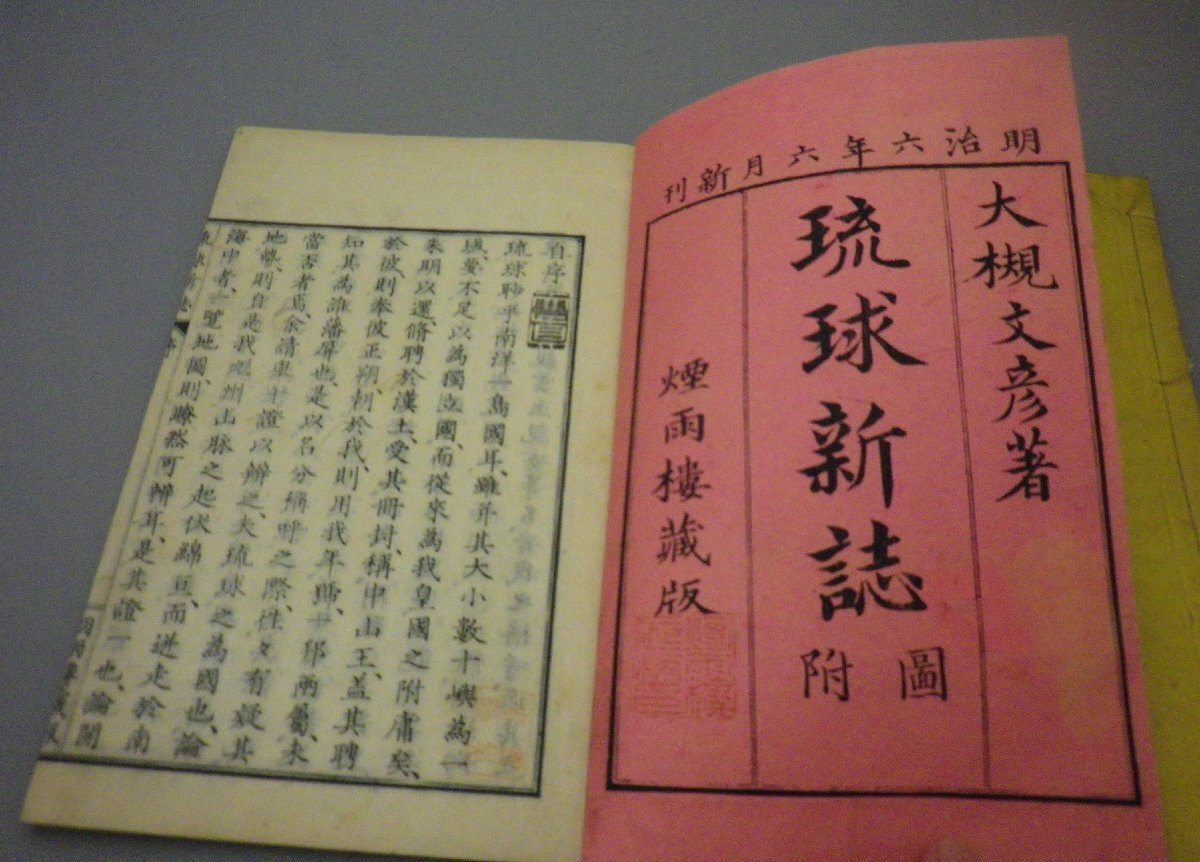 明治六年六月新刊
大槻文彦著
琉球新誌
圖附
煙雨樓藏版
自序
琉球眇乎南洋一島國耳、雖幷其大小數十嶼為一
域、要不足以為獨立國、而從來為我皇國之附庸矣、
朱明以還、脩聘於漢土、受其冊封、稱中山王、蓋其聘
於彼、則奉彼正朔、朝於我、則用我年號、一邦兩屬、未
知其為誰藩屏也、是以名分稱呼之際、往々有疑其
當否者焉、余請舉一證以辨之、夫琉球之為國也、論
地勢、則自是我九州山脉之起伏綿亘、而迸走於南
海中者、一覽地圖、則瞭然可辨耳、是其證一也、論開